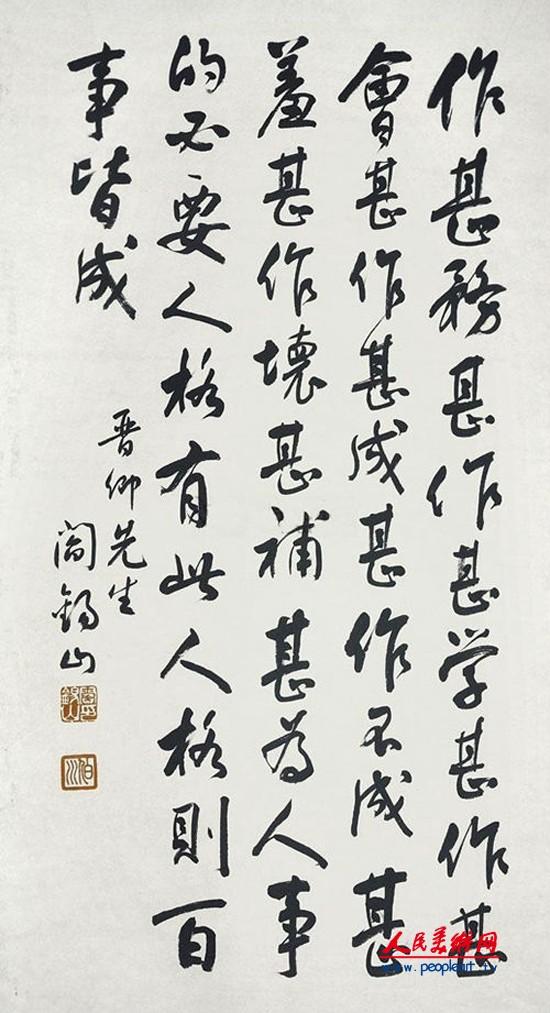 作甚務甚作甚学甚作甚
會甚作甚成甚作不成甚
羞甚作壞甚補甚為人事
的必要人格有此人格則百
事皆成
晋卿先生
閻錫山
閻錫山
伯川
人民美術网
www.peopleart.tv